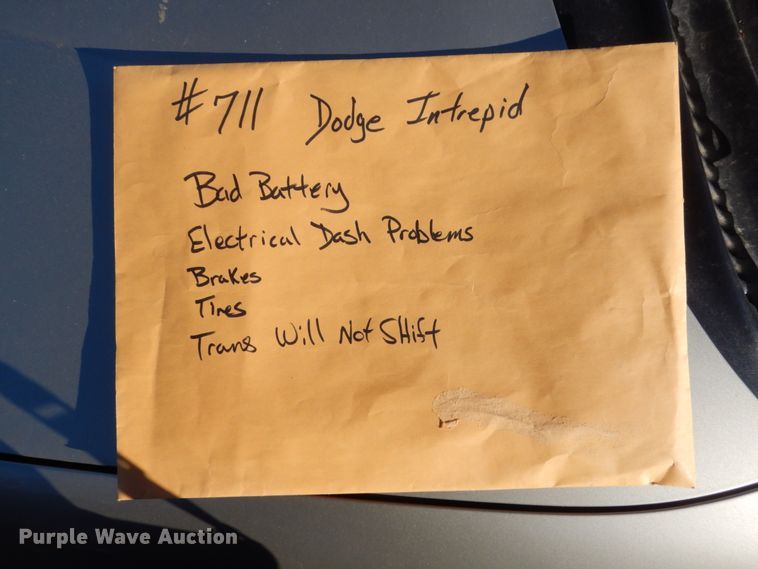 #711 Dodge Intrepid
Bad Battery
Electrical Dash Problems
Brakes
Tires
Trans Will Not SHift
Purple Wave Auction